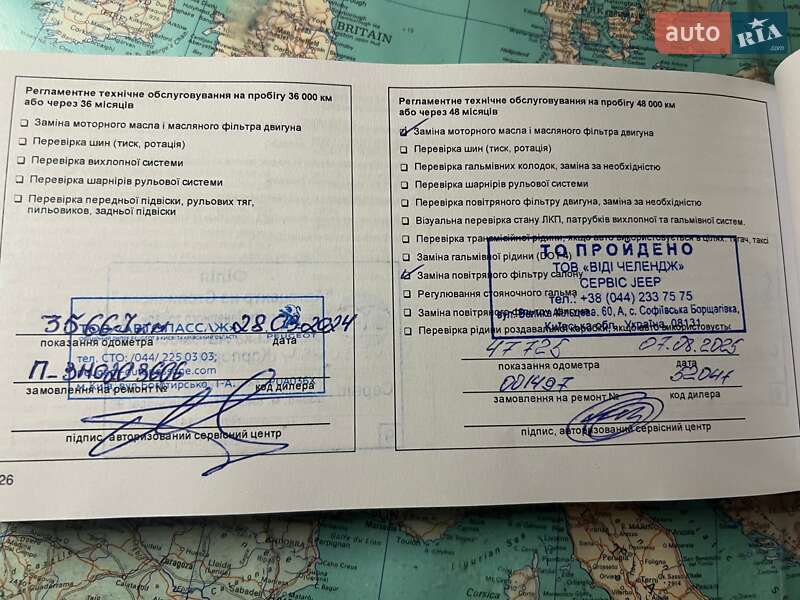 auto RIA.com
BRITAIN
Регламентне технічне обслуговування на пробігу 36 000 км
або через 36 місяців
Заміна моторного масла і масляного фільтра двигуна
Перевірка шин (тиск, ротація)
Перевірка вихлопної системи
Перевірка шарнірів рульової системи
Перевірка передньої підвіски, рульових тяг,
пильовиків, задньої підвіски
показання одометра
дата
PEUGEOT
тел. СТО: /044/ 225 03 03;
замовлення на ремонт №
код дилера
підпис, авторизований сервісний центр
26
Регламентне технічне обслуговування на пробігу 48 000 км
або через 48 місяців
Заміна моторного масла і масляного фільтра двигуна
Перевірка шин (тиск, ротація)
Перевірка гальмівних колодок, заміна за необхідністю
Перевірка шарнірів рульової системи
Перевірка повітряного фільтру двигуна, заміна за необхідністю
Візуальна перевірка стану ЛКП, патрубків вихлопної та гальмівної систем.
Перевірка трансмісійної рідини, якщо авто використовується в цілях: тягач, таксі
Заміна гальмівної рідини (DOT 4)
Заміна повітряного фільтру салону
Регулювання стояночного гальма
Заміна повітряного фільтру двигуна
Перевірка рідини роздавальної коробки, якщо авто використовується
ТО ПРОЙДЕНО
ТОВ «ВІДІ ЧЕЛЕНДЖ»
СЕРВІС JEEP
тел.: +38 (044) 233 75 75
вул. Велика Кільцева, 60, А, с. Софіївська Борщагівка,
Київська обл., Україна, 08131
47725 07.08.2025
показання одометра
дата
001497 52047
замовлення на ремонт №
код дилера
підпис, авторизований сервісний центр
Ligurian Sea
Corsica
ANDORRA
Perpignan